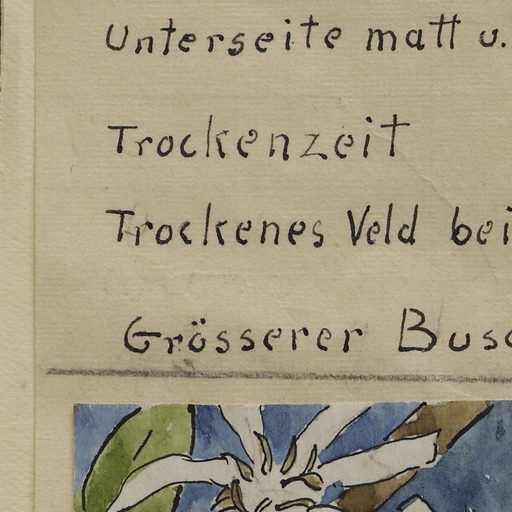 Unterseite matt u.
Trockenzeit
Trockenes Veld bei
Grösserer Busc